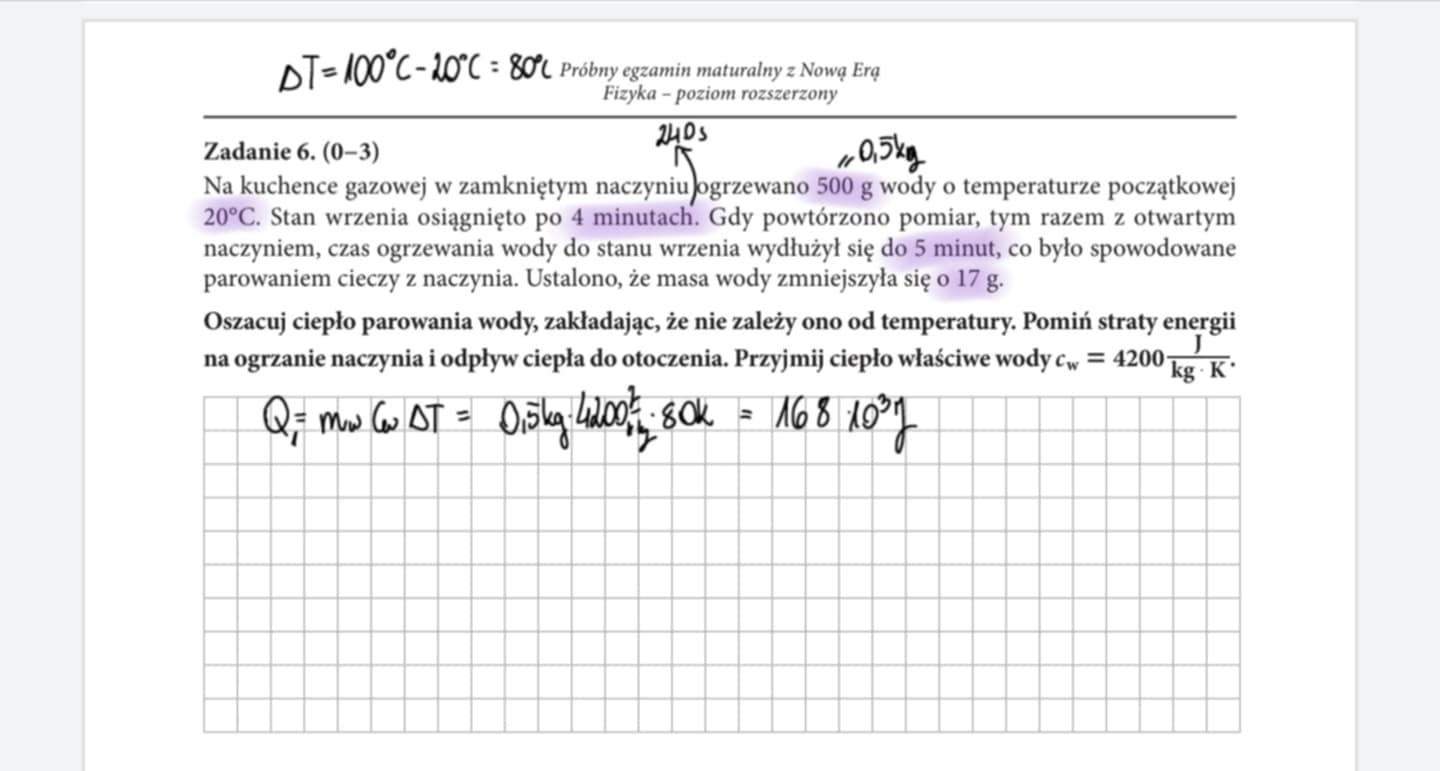 ΔT = 100°C - 20°C = 80°C Próbny egzamin maturalny z Nową Erą
Fizyka – poziom rozszerzony
240s
0,5kg
Zadanie 6. (0–3)
Na kuchence gazowej w zamkniętym naczyniu ogrzewano 500 g wody o temperaturze początkowej
20°C. Stan wrzenia osiągnięto po 4 minutach. Gdy powtórzono pomiar, tym razem z otwartym
naczyniem, czas ogrzewania wody do stanu wrzenia wydłużył się do 5 minut, co było spowodowane
parowaniem cieczy z naczynia. Ustalono, że masa wody zmniejszyła się o 17 g.
Oszacuj ciepło parowania wody, zakładając, że nie zależy ono od temperatury. Pomiń straty energii
na ogrzanie naczynia i odpływ ciepła do otoczenia. Przyjmij ciepło właściwe wody c_w = 4200 J/(kg · K).
Q₁ = m_w c_w ΔT = 0,5kg · 4200 J/kg · 80K = 168 · 10³ J